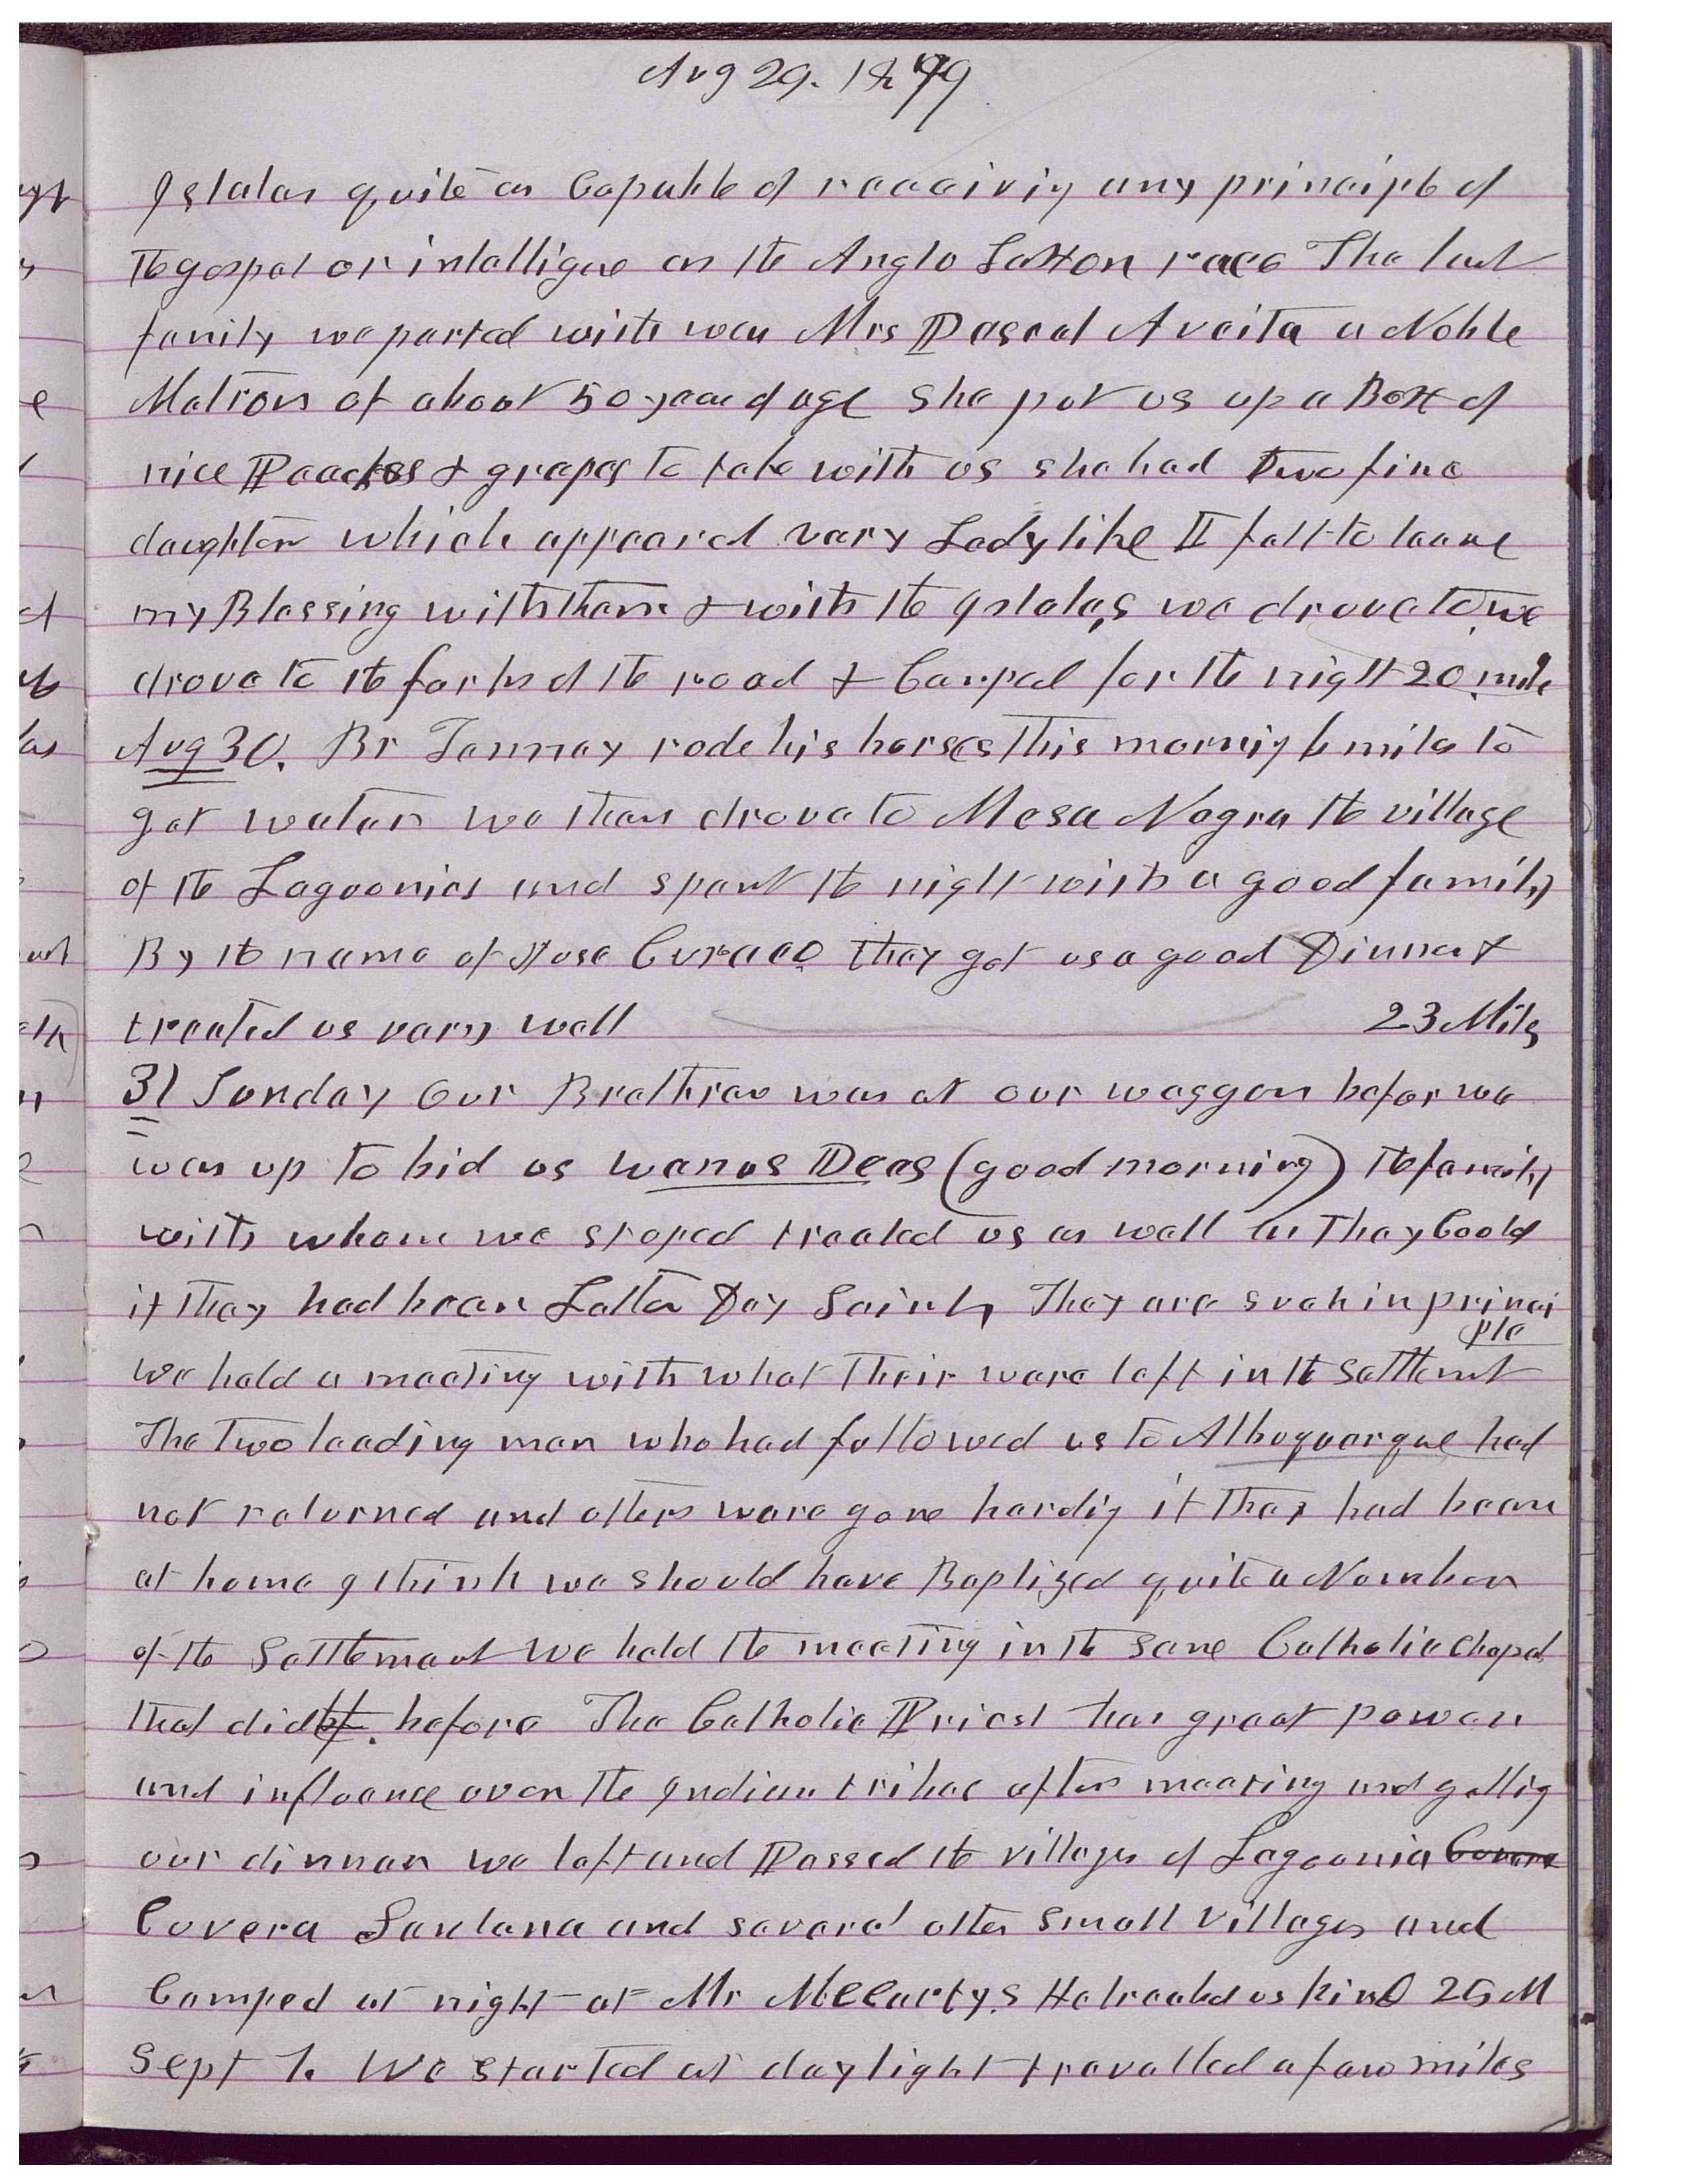 Aug 29. 1879
Islatas quite as Capable of receiving any principle of
the gospel or intelligence as the Anglo Saxton race The last
family we parted with was Mrs Pascal Aveita a Noble
Matron of about 50 years of age she put us up a Box of
nice Peaches & grapes to take with us she had two fine
daughters which appeared very Lady like I felt to leave
my Blessing with them & with the Islatas we drove to we
drove to the forks of the road & Camped for the night 20 mile
Aug 30. Br Tenney rode his horses this morning 6 miles to
get water we then drove to Mesa Negra the village
of the Lagoonies and spent the night with a good family
By the name of Jose Curaco they got us a good Dinner &
treated us vary well 23 Miles
31 Sunday Our Bretheren was at our waggon befor we
was up to bid us wanos Deas (good morning) the family
with whom we stoped treated us as well as they Could
if they had been Latter Day Saints They are such in princi
ple
we held a meeting with what their were left in the settlement
The two leading men who had followed us to Albuquerque had
not returned and others were gone harding if they had been
at home I think we should have Baptized quite a Number
of the Settlement we held the meeting in the same Catholic Chapel
that did before The Catholic Priest has great power
and influence over the Indian tribes after meeting and getting
our dinner we left and Passed the villages of Lagoonia
Covera Santana and several other small villages and
Camped at night at Mr McCartys He treated us kind 25 M
Sept 1. We started at daylight travelled a few miles